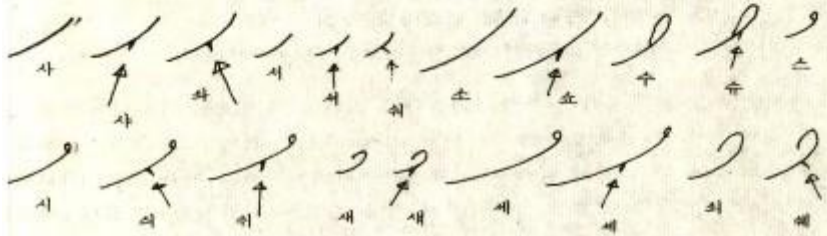 사 샤 솨 서 셔 숴 소 쇼 수 슈 스
시 쇠 쉬 새 섀 세 셰 쇄 쉐